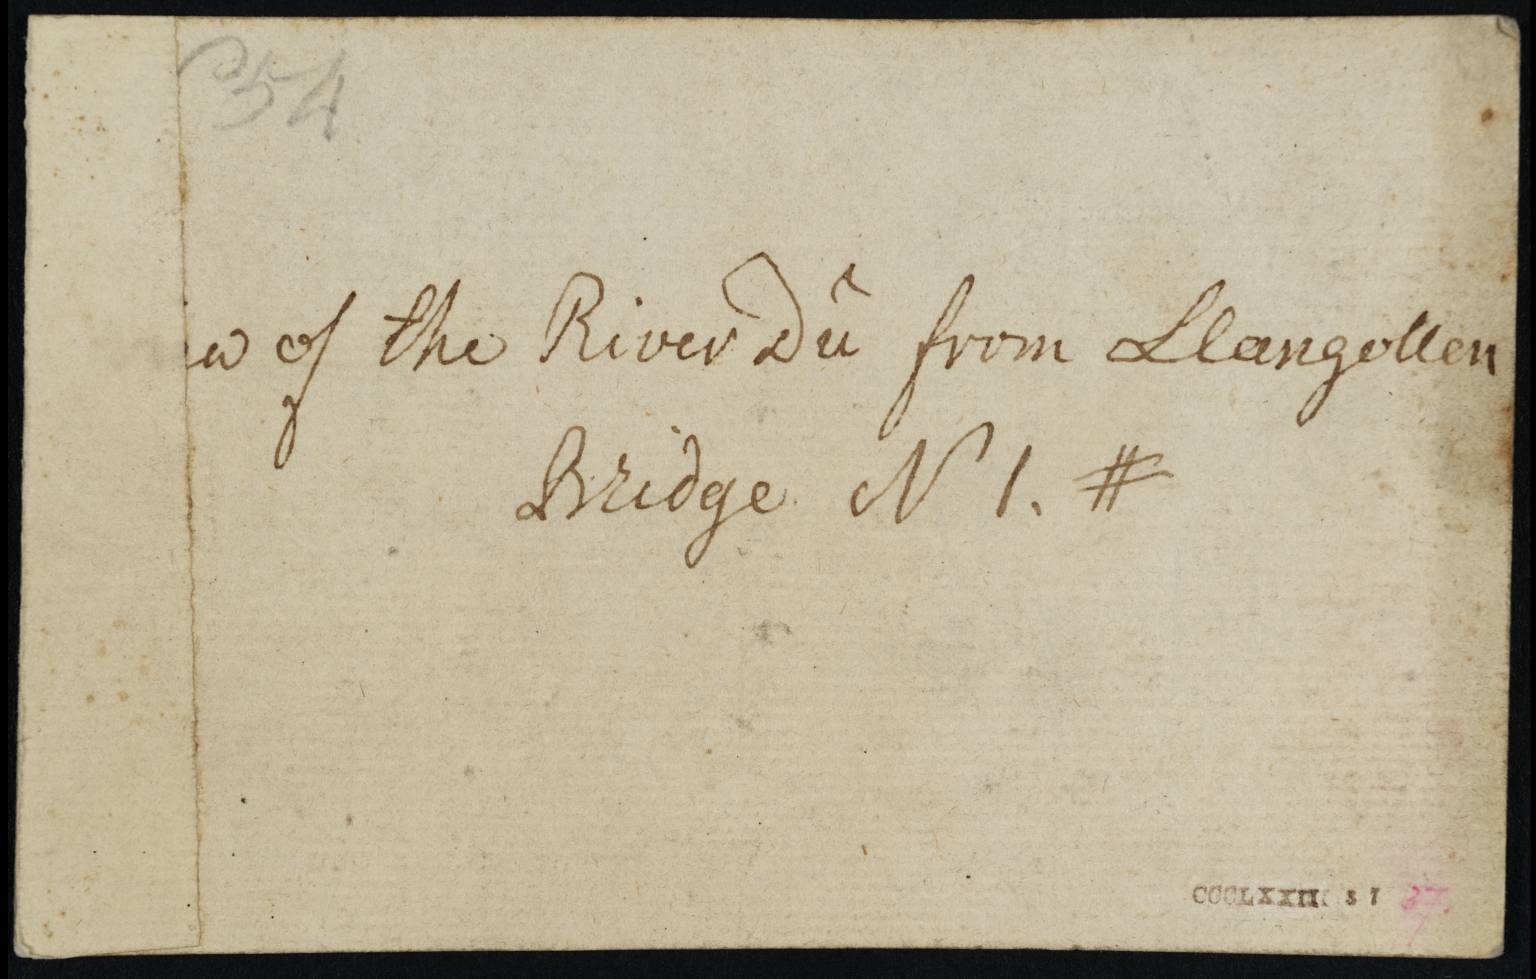 54
w of the River Dû from Llangollen
Bridge N 1. #
CCCLXXII 37
37.